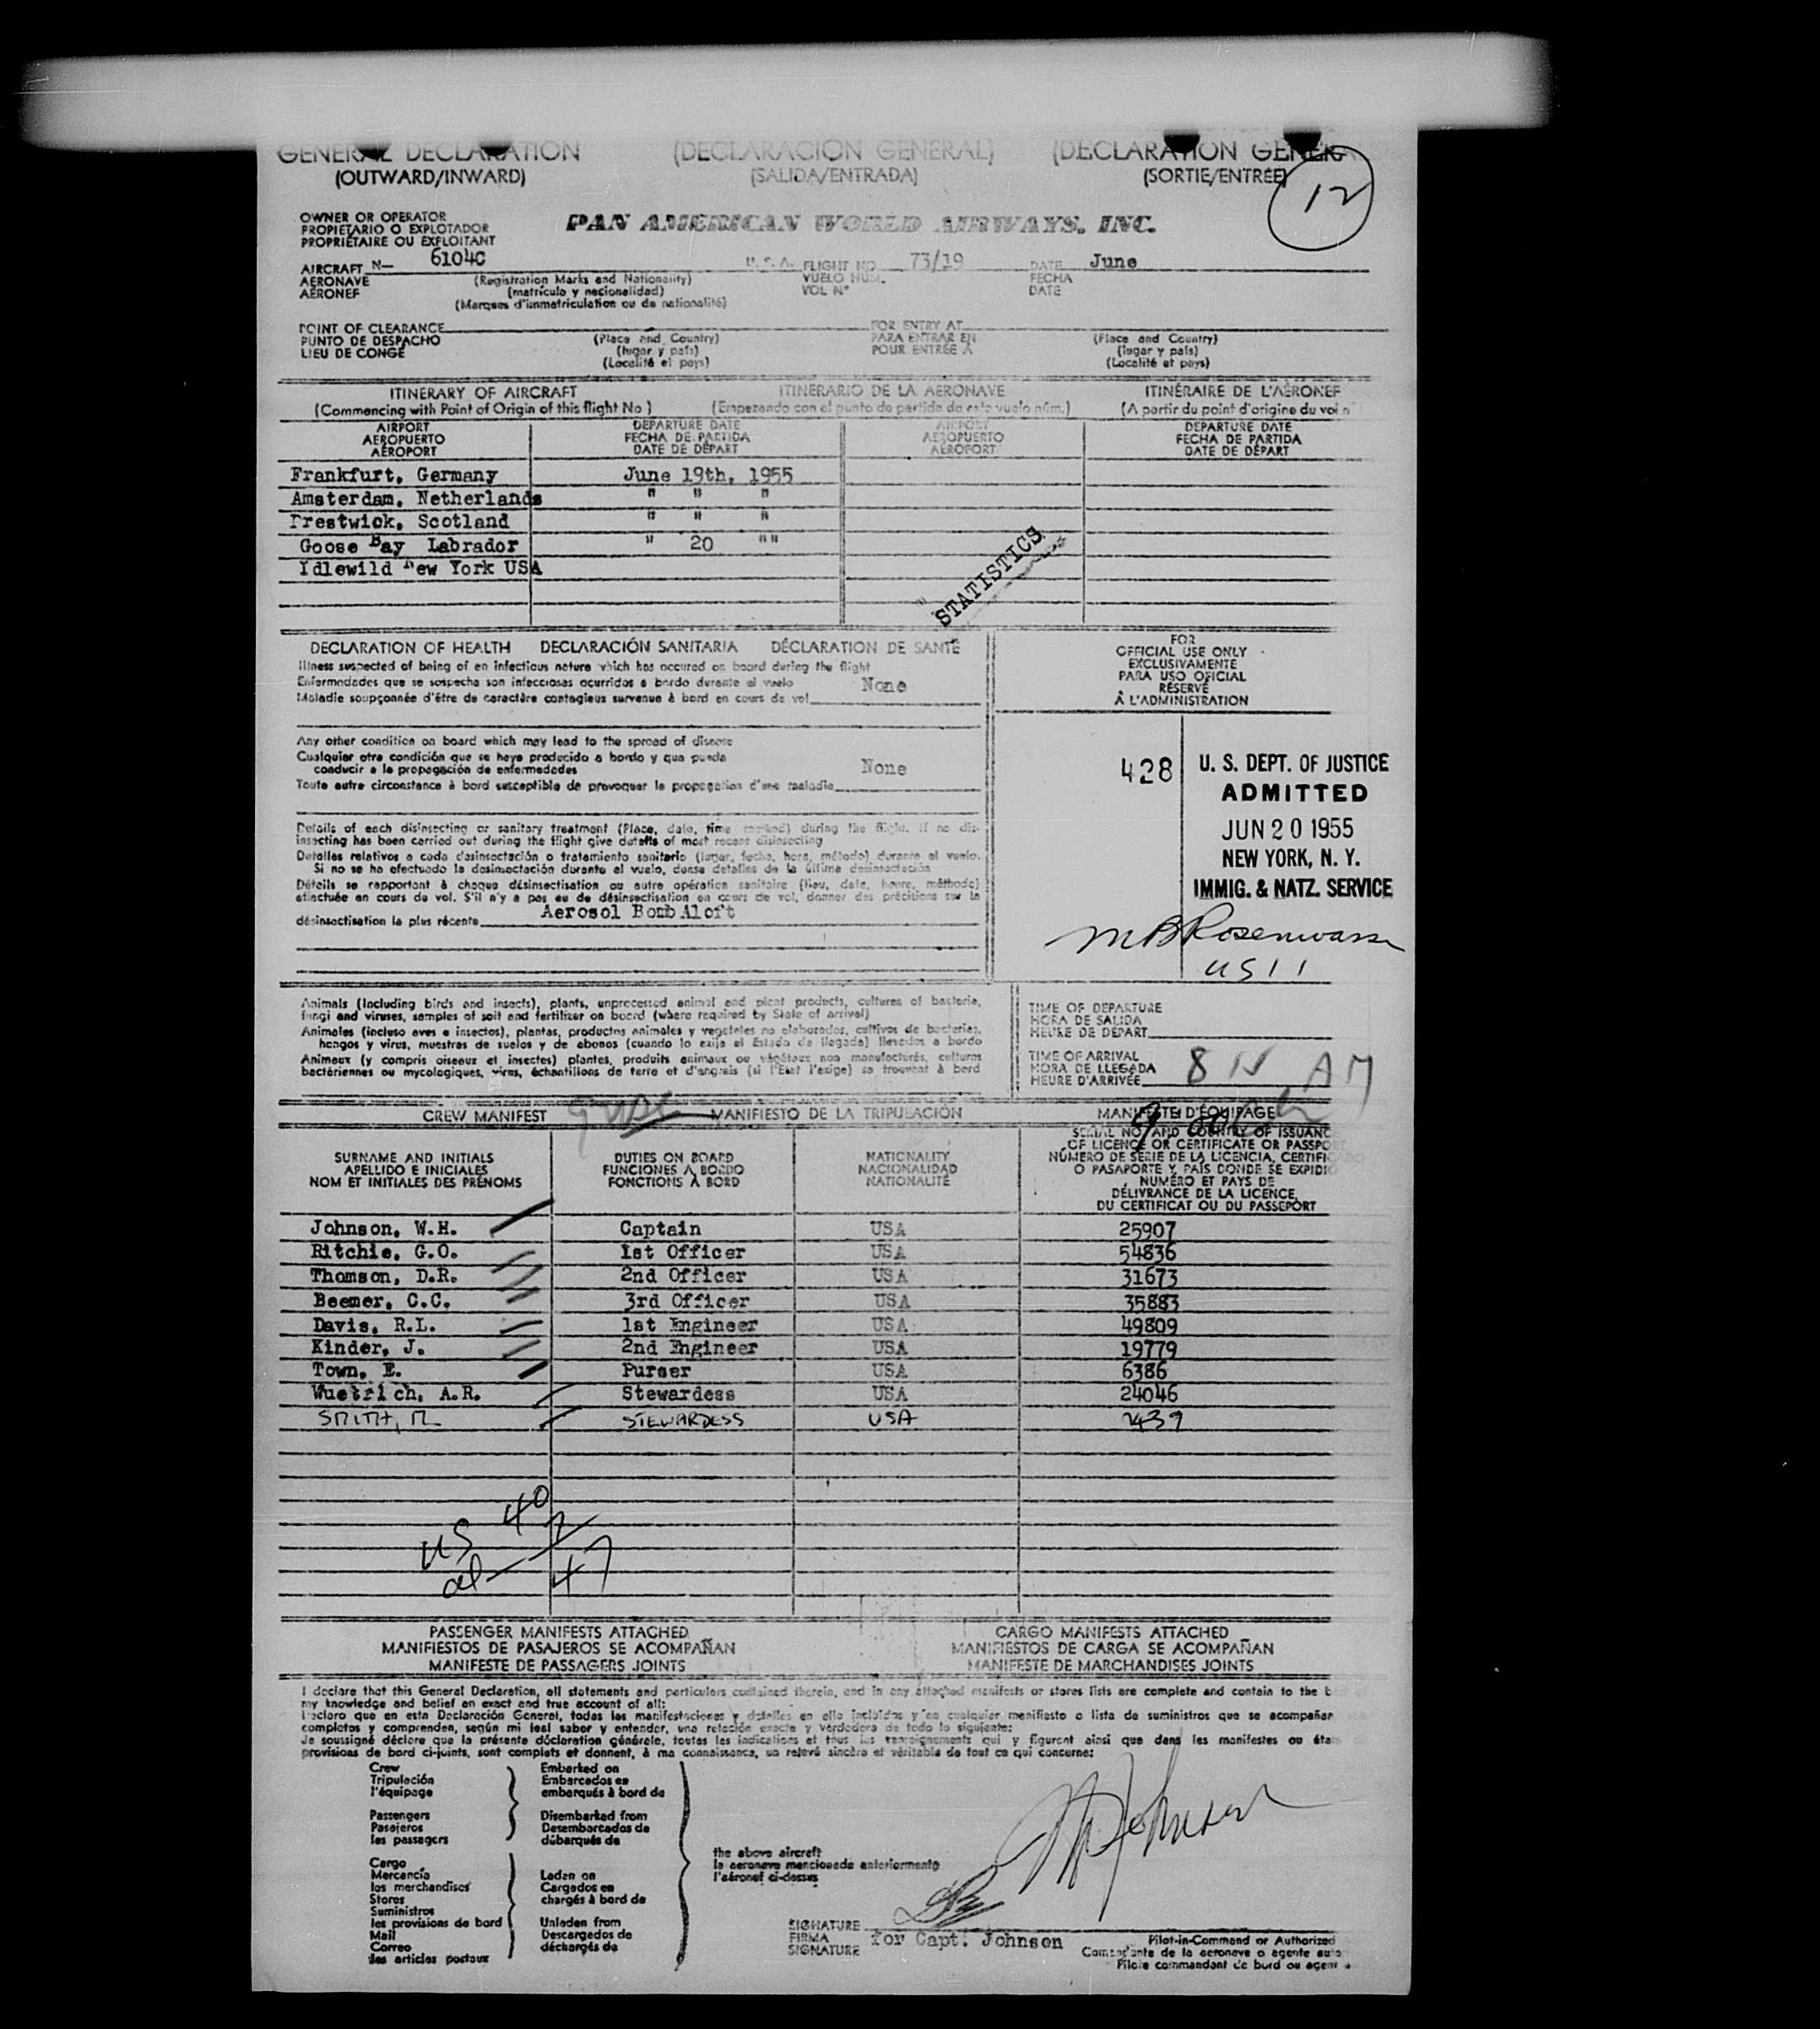 GENERAL DECLARATION (DECLARACIÓN GENERAL) (DECLARATION GENERA
(OUTWARD/INWARD) (SALIDA/ENTRADA) (SORTIE/ENTRÉE)
12
OWNER OR OPERATOR
PROPIETARIO O EXPLOTADOR
PROPRIÉTAIRE OU EXPLOITANT
PAN AMERICAN WORLD AIRWAYS, INC.
AIRCRAFT N— 6104C U. S. A. FLIGHT NO. 73/19 DATE June
AERONAVE (Registration Marks and Nationality) VUELO NÚM. FECHA
AÉRONEF (matrícula y nacionalidad) VOL Nº DATE
(Marques d'immatriculation ou de nationalité)
POINT OF CLEARANCE FOR ENTRY AT
PUNTO DE DESPACHO (Place and Country) PARA ENTRAR EN (Place and Country)
LIEU DE CONGÉ (lugar y país) POUR ENTRÉE À (lugar y país)
(Localité et pays) (Localité et pays)
ITINERARY OF AIRCRAFT ITINERARIO DE LA AERONAVE ITINÉRAIRE DE L'AÉRONEF
(Commencing with Point of Origin of this flight No ) (Empezando con el punto de partida de este vuelo núm.) (A partir du point d'origine du vol n
AIRPORT DEPARTURE DATE AIRPORT DEPARTURE DATE
AEROPUERTO FECHA DE PARTIDA AEROPUERTO FECHA DE PARTIDA
AÉROPORT DATE DE DÉPART AÉROPORT DATE DE DÉPART
Frankfurt, Germany June 19th, 1955
Amsterdam, Netherlands " " "
Prestwick, Scotland " " "
Goose Bay Labrador " 20 ""
Idlewild New York USA
STATISTICS
DECLARATION OF HEALTH DECLARACIÓN SANITARIA DÉCLARATION DE SANTÉ
Illness suspected of being of an infectious nature which has occured on board during the flight
Enfermedades que se sospecha son infecciosas ocurridos a bordo durante el vuelo None
Maladie soupçonnée d'être de caractère contagieux survenue à bord en cours de vol
FOR
OFFICIAL USE ONLY
EXCLUSIVAMENTE
PARA USO OFICIAL
RÉSERVÉ
À L'ADMINISTRATION
Any other condition on board which may lead to the spread of disease
Cualquier otra condición que se haya producido a bordo y que pueda
conducir a la propagación de enfermedades None
Toute autre circonstance à bord susceptible de provoquer la propagation d'une maladie
428
U. S. DEPT. OF JUSTICE
ADMITTED
JUN 20 1955
NEW YORK, N. Y.
IMMIG. & NATZ. SERVICE
Details of each disinsecting or sanitary treatment (Place, date, time method) during the flight. If no dis-
insecting has been carried out during the flight give details of most recent disinsecting
Detalles relativos a cada desinsectación o tratamiento sanitario (lugar, fecha, hora, método) durante el vuelo.
Si no se ha efectuado la desinsectación durante el vuelo, dense detalles de la última desinsectación
Détails se rapportant à chaque désinsectisation ou autre opération sanitaire (lieu, date, heure, méthode)
effectuée en cours de vol. S'il n'y a pas eu de désinsectisation en cours de vol, donner des précisions sur la
désinsectisation la plus récente Aerosol Bomb Aloft
M B Rosenwasser
US 11
Animals (including birds and insects), plants, unprocessed animal and plant products, cultures of bacteria,
fungi and viruses, samples of soil and fertilizer on board (where required by State of arrival)
Animales (incluso aves e insectos), plantas, productos animales y vegetales no elaborados, cultivos de bacterias,
hongos y virus, muestras de suelos y de abonos (cuando lo exija el Estado de llegada) llevados a bordo
Animaux (y compris oiseaux et insectes) plantes, produits animaux ou végétaux non manufacturés, cultures
bactériennes ou mycologiques, virus, échantillons de terre et d'engrais (si l'Etat l'exige) se trouvant à bord
TIME OF DEPARTURE
HORA DE SALIDA
HEURE DE DÉPART
TIME OF ARRIVAL
HORA DE LLEGADA
HEURE D'ARRIVÉE 8 15 AM
CREW MANIFEST MANIFIESTO DE LA TRIPULACIÓN MANIFESTE D'ÉQUIPAGE
SURNAME AND INITIALS
APELLIDO E INICIALES
NOM ET INITIALES DES PRÉNOMS
DUTIES ON BOARD
FUNCIONES A BORDO
FONCTIONS À BORD
NATIONALITY
NACIONALIDAD
NATIONALITÉ
SERIAL NO. AND COUNTRY OF ISSUANC
OF LICENCE OR CERTIFICATE OR PASSPO
NÚMERO DE SERIE DE LA LICENCIA, CERTIFI
O PASAPORTE Y PAÍS DONDE SE EXPIDI
NUMÉRO ET PAYS DE
DÉLIVRANCE DE LA LICENCE,
DU CERTIFICAT OU DU PASSEPORT
Johnson, W.H. Captain USA 25907
Ritchie, G.O. 1st Officer USA 54836
Thomson, D.R. 2nd Officer USA 31673
Beemer, C.C. 3rd Officer USA 35883
Davis, R.L. 1st Engineer USA 49809
Kinder, J. 2nd Engineer USA 19779
Town, E. Purser USA 6386
Wuetrich, A.R. Stewardess USA 24046
SMITH, M. STEWARDESS USA 2439
US 40
al— 7
47
PASSENGER MANIFESTS ATTACHED CARGO MANIFESTS ATTACHED
MANIFIESTOS DE PASAJEROS SE ACOMPAÑAN MANIFIESTOS DE CARGA SE ACOMPAÑAN
MANIFESTE DE PASSAGERS JOINTS MANIFESTE DE MARCHANDISES JOINTS
I declare that this General Declaration, all statements and particulars contained therein, and in any attached manifests or stores lists are complete and contain to the b
my knowledge and belief an exact and true account of all:
Declaro que en esta Declaración General, todas las manifestaciones y detalles en ella incluídos y en cualquier manifiesto o lista de suministros que se acompañan
completos y comprenden, según mi leal saber y entender, una relación exacta y verdadera de todo lo siguiente:
Je soussigné déclare que la présente déclaration générale, toutes les indications et tous les renseignements qui y figurent ainsi que dans les manifestes ou état
provisions de bord ci-joints, sont complets et donnent, à ma connaissance, un relevé sincère et véritable de tout ce qui concerne:
Crew
Tripulación
l'équipage
Embarked on
Embarcados en
embarqués à bord de
Passengers
Pasajeros
les passagers
Disembarked from
Desembarcados de
débarqués de
Cargo
Mercancía
les merchandises
Stores
Suministros
les provisions de bord
Mail
Correo
des articles postaux
Laden on
Cargados en
chargés à bord de
Unladen from
Descargados de
déchargés de
the above aircraft
la aeronave mencionada anteriormente
l'aéronef ci-dessus
W Johnson
SIGNATURE
FIRMA
SIGNATURE
for Capt. Johnson
Pilot-in-Command or Authorized
Comandante de la aeronave o agente auto
Pilote commandant de bord ou agent a